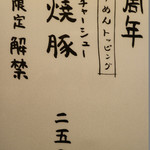 周年
らーめんトッピング
焼豚
チャーシュー
二五
限定解禁